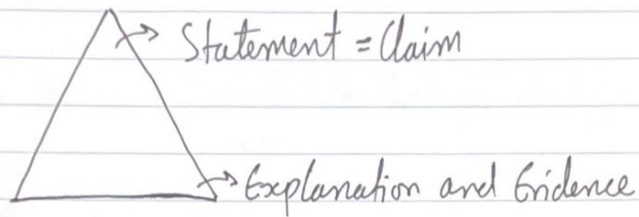 Statement = Claim
Explanation and Evidence